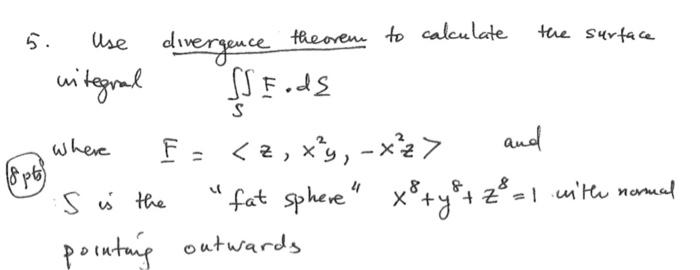 5. Use divergence theorem to calculate the surface
integral ∬_S F . dS
where F = < z, x²y, -x²z > and
8 pts
S is the "fat sphere" x⁸+y⁸+z⁸=1 with normal
pointing outwards